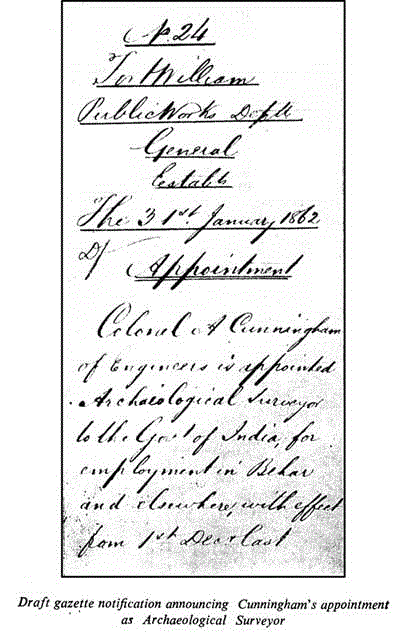 No. 24
Fort William
Public Works Deptt
General
Establt
The 31st January 1862
D/
Appointment
Colonel A Cunningham
of Engineers is appointed
Archaeological Surveyor
to the Govt of India, for
employment in Behar
and elsewhere, with effect
from 1st Decr last
Draft gazette notification announcing Cunningham's appointment
as Archaeological Surveyor